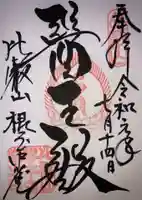 奉拝
令和元年
七月十四日
醫王殿
比叡山 根本中堂